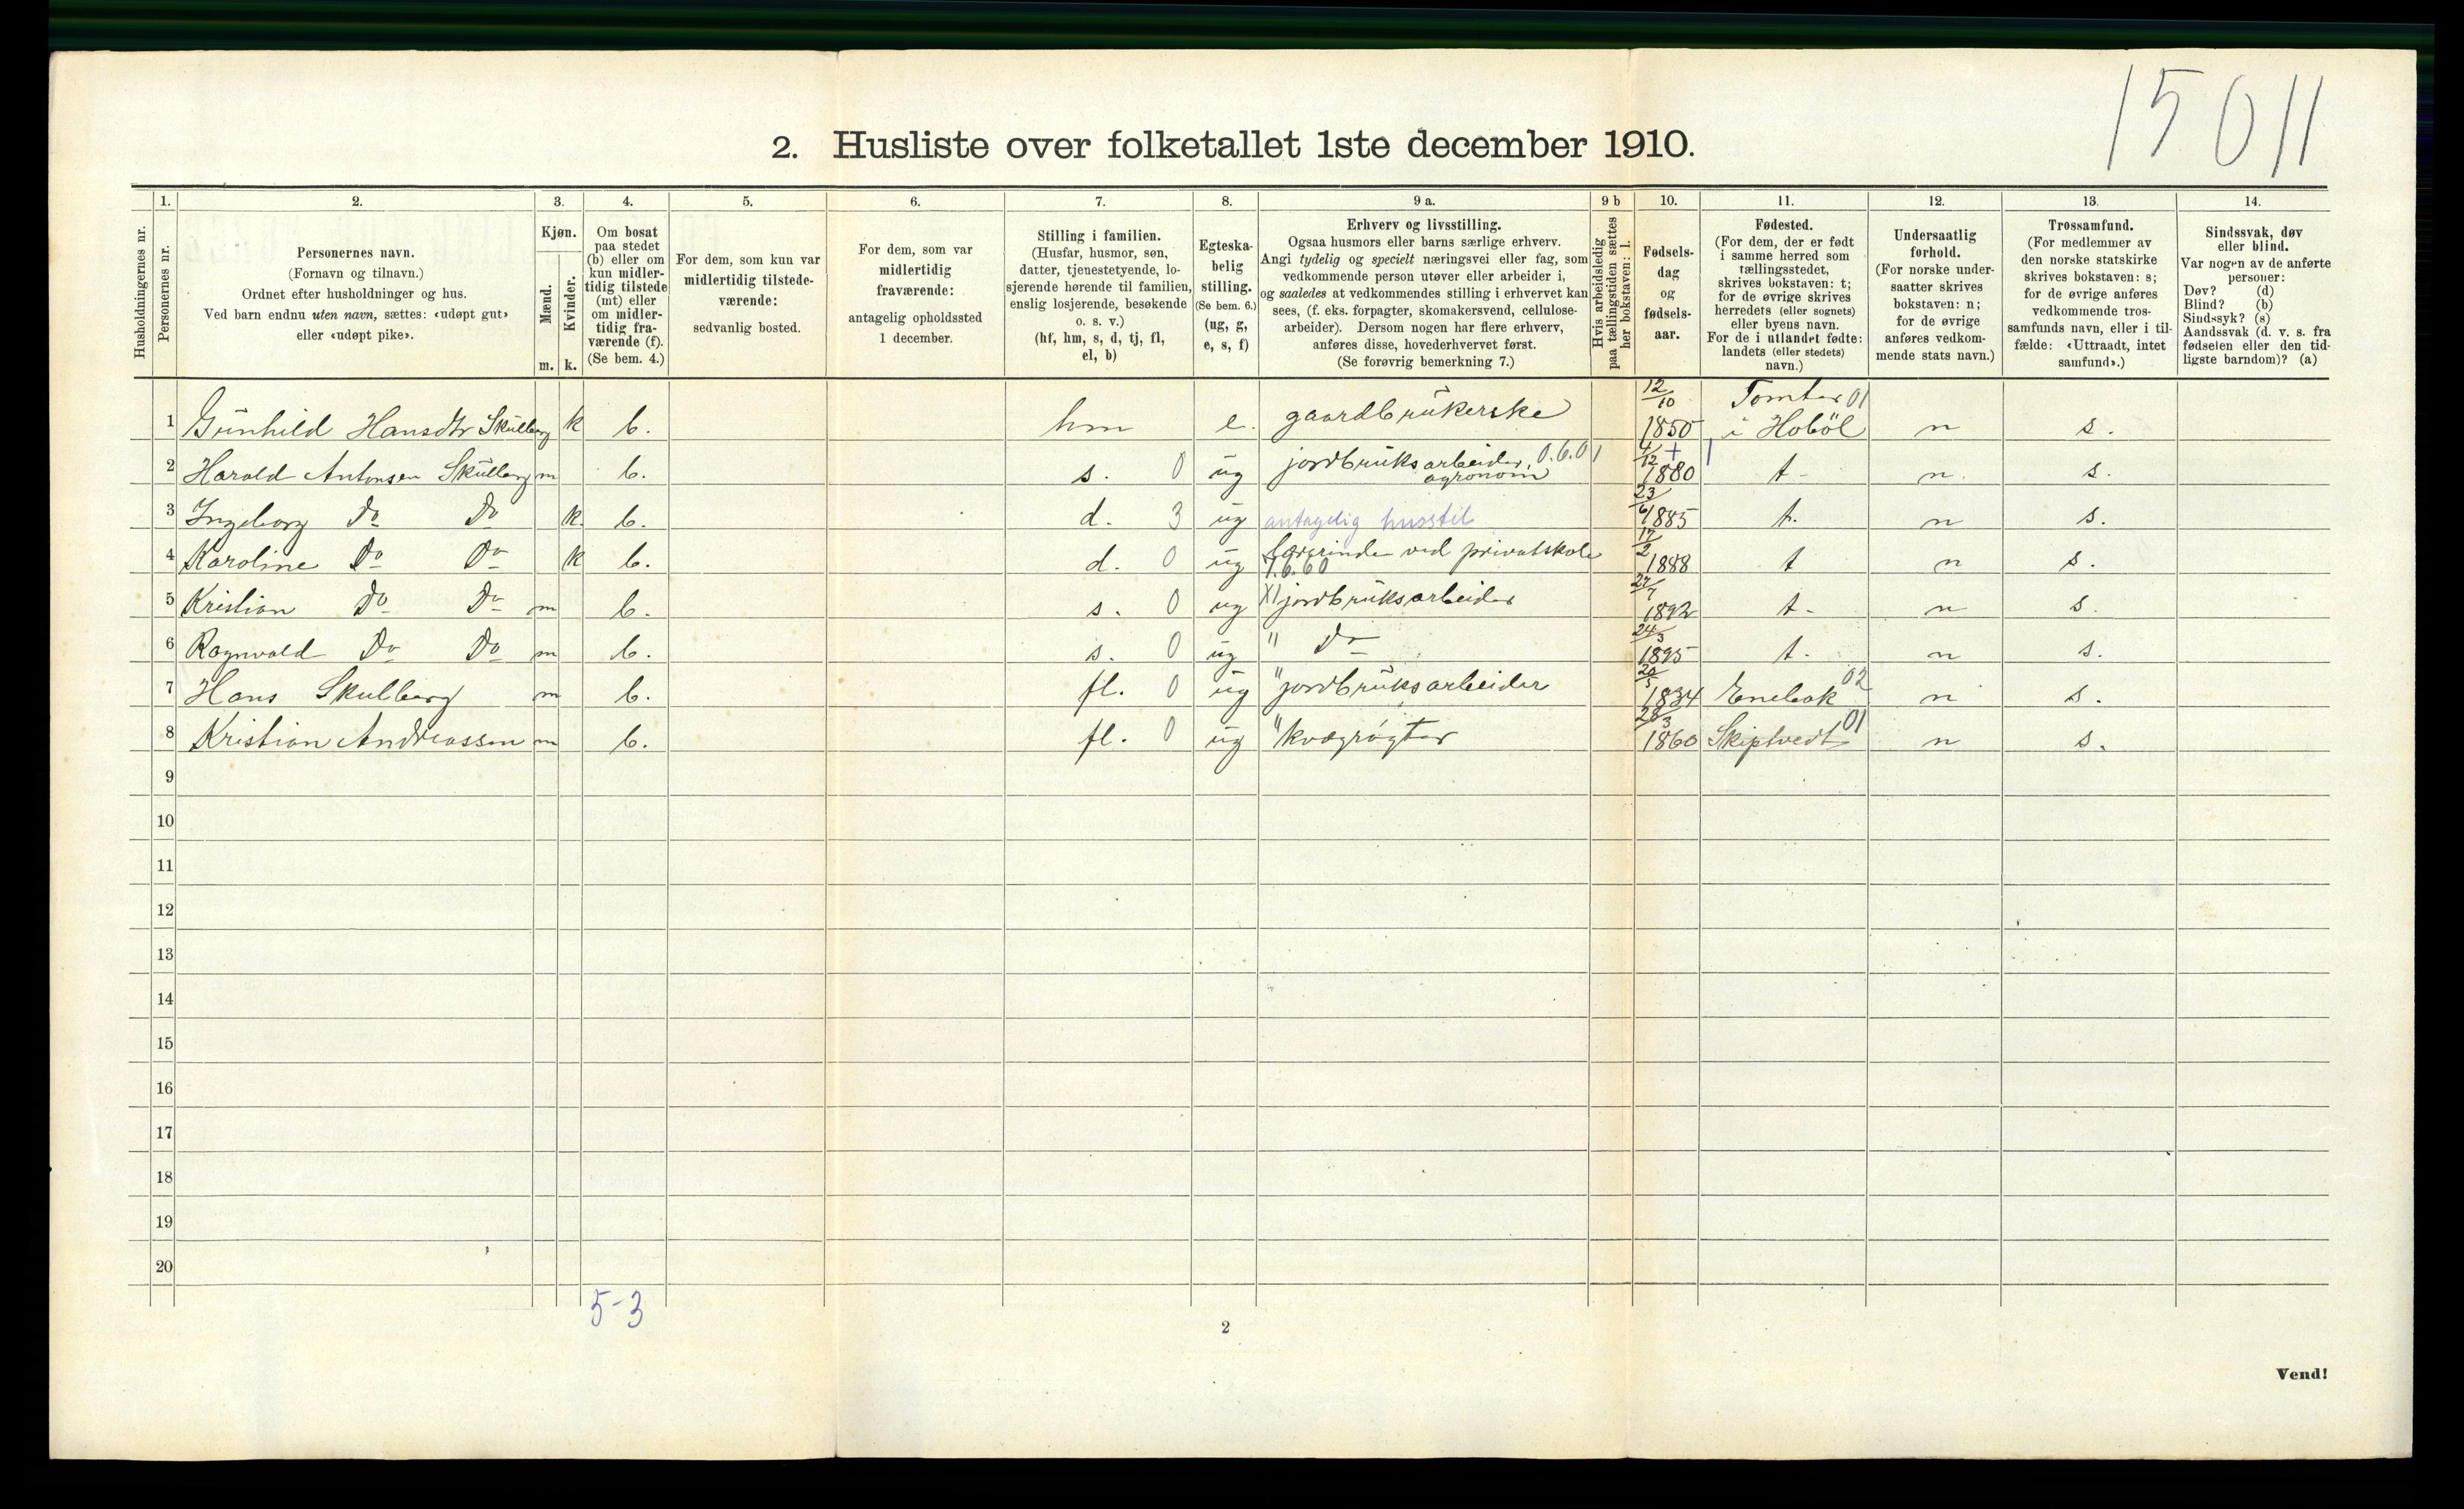 15011
2. Husliste over folketallet 1ste december 1910.
1. 2. 3. 4. 5. 6. 7. 8. 9 a. 9 b 10. 11. 12. 13. 14.
Husholdningernes nr.
Personernes nr.
Personernes navn.
(Fornavn og tilnavn.)
Ordnet efter husholdninger og hus.
Ved barn endnu uten navn, sættes: «udøpt gut»
eller «udøpt pike».
Kjøn.
Mænd.
Kvinder.
m. k.
Om bosat
paa stedet
(b) eller om
kun midler-
tidig tilstede
(mt) eller
om midler-
tidig fra-
værende (f).
(Se bem. 4.)
For dem, som kun var
midlertidig tilstede-
værende:
sedvanlig bosted.
For dem, som var
midlertidig
fraværende:
antagelig opholdssted
1 december.
Stilling i familien.
(Husfar, husmor, søn,
datter, tjenestetyende, lo-
sjerende hørende til familien,
enslig losjerende, besøkende
o. s. v.)
(hf, hm, s, d, tj, fl,
el, b)
Egteska-
belig
stilling.
(Se bem. 6.)
(ug, g,
e, s, f)
Erhverv og livsstilling.
Ogsaa husmors eller barns særlige erhverv.
Angi tydelig og specielt næringsvei eller fag, som
vedkommende person utøver eller arbeider i,
og saaledes at vedkommendes stilling i erhvervet kan
sees, (f. eks. forpagter, skomakersvend, cellulose-
arbeider). Dersom nogen har flere erhverv,
anføres disse, hovederhvervet først.
(Se forøvrig bemerkning 7.)
Hvis arbeidsledig
paa tællingstiden sættes
her bokstaven: l.
Fødsels-
dag
og
fødsels-
aar.
Fødested.
(For dem, der er født
i samme herred som
tællingsstedet,
skrives bokstaven: t;
for de øvrige skrives
herredets (eller sognets)
eller byens navn.
For de i utlandet fødte:
landets (eller stedets)
navn.)
Undersaatlig
forhold.
(For norske under-
saatter skrives
bokstaven: n;
for de øvrige
anføres vedkom-
mende stats navn.)
Trossamfund.
(For medlemmer av
den norske statskirke
skrives bokstaven: s;
for de øvrige anføres
vedkommende tros-
samfunds navn, eller i til-
fælde: «Uttraadt, intet
samfund».)
Sindssvak, døv
eller blind.
Var nogen av de anførte
personer:
Døv? (d)
Blind? (b)
Sindssyk? (s)
Aandssvak (d. v. s. fra
fødselen eller den tid-
ligste barndom)? (a)
1 Gunhild Hansdtr Skulberg k b. hm e. gaardbrukerske 12/10 1850 Tomter 01 i Hobøl n s.
2 Harald Antonsen Skulberg m b. s. 0 ug jordbruksarbeider, agronom 0.6.01 4/12 1880 t. n. s.
3 Ingeborg Do Do k. b. d. 3 ug antagelig husstel 23/6 1885 t. n s.
4 Karoline Do Do k b. d. 0 ug lærerinde ved privatskole 7.6.60 17/2 1888 t n s.
5 Kristian Do Do m b. s. 0 ug X1 jordbruksarbeider 27/7 1892 t. n s.
6 Ragnvald Do Do m b. s. 0 ug " Do 24/3 1895 t. n s.
7 Hans Skulberg m b. fl. 0 ug "jordbruksarbeider 20/5 1834 Enebak 02 n s.
8 Kristian Andreassen m b. fl. 0 ug "kvægrøgter 28/3 1860 Skiptvedt 01 n s.
9
10
11
12
13
14
15
16
17
18
19
20
5-3
2
Vend!